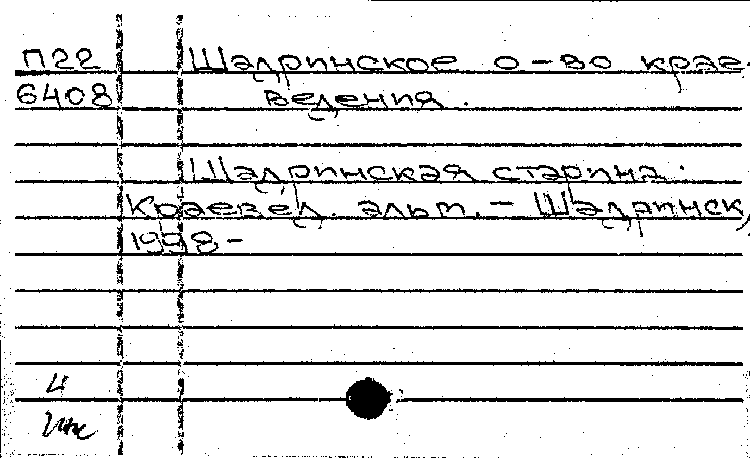 П22 Шадринское о-во крае-
6408 ведения.
Шадринская старина.
Краевед. альм. – Шадринск,
1998 –